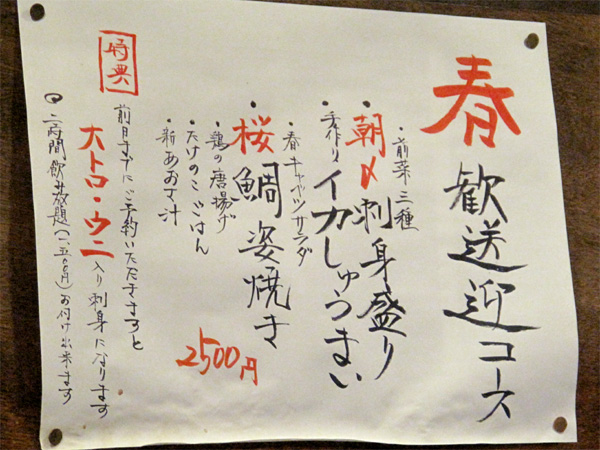 春 歓送迎コース
・前菜三種
・朝〆刺身盛り
・手作りイカしゅうまい
・春キャベツサラダ
・桜鯛姿焼き
・鶏の唐揚げ
・たけのこごはん
・新あおさ汁
2500円
特典
前日までにご予約いただきますと
大トロ・ウニ入り刺身になります
二時間飲み放題(一、五〇〇円)お付け出来ます